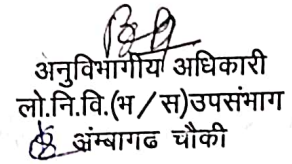 अनुविभागीय अधिकारी
लो.नि.वि.(भ/स)उपसंभाग
अंम्बागढ चौकी